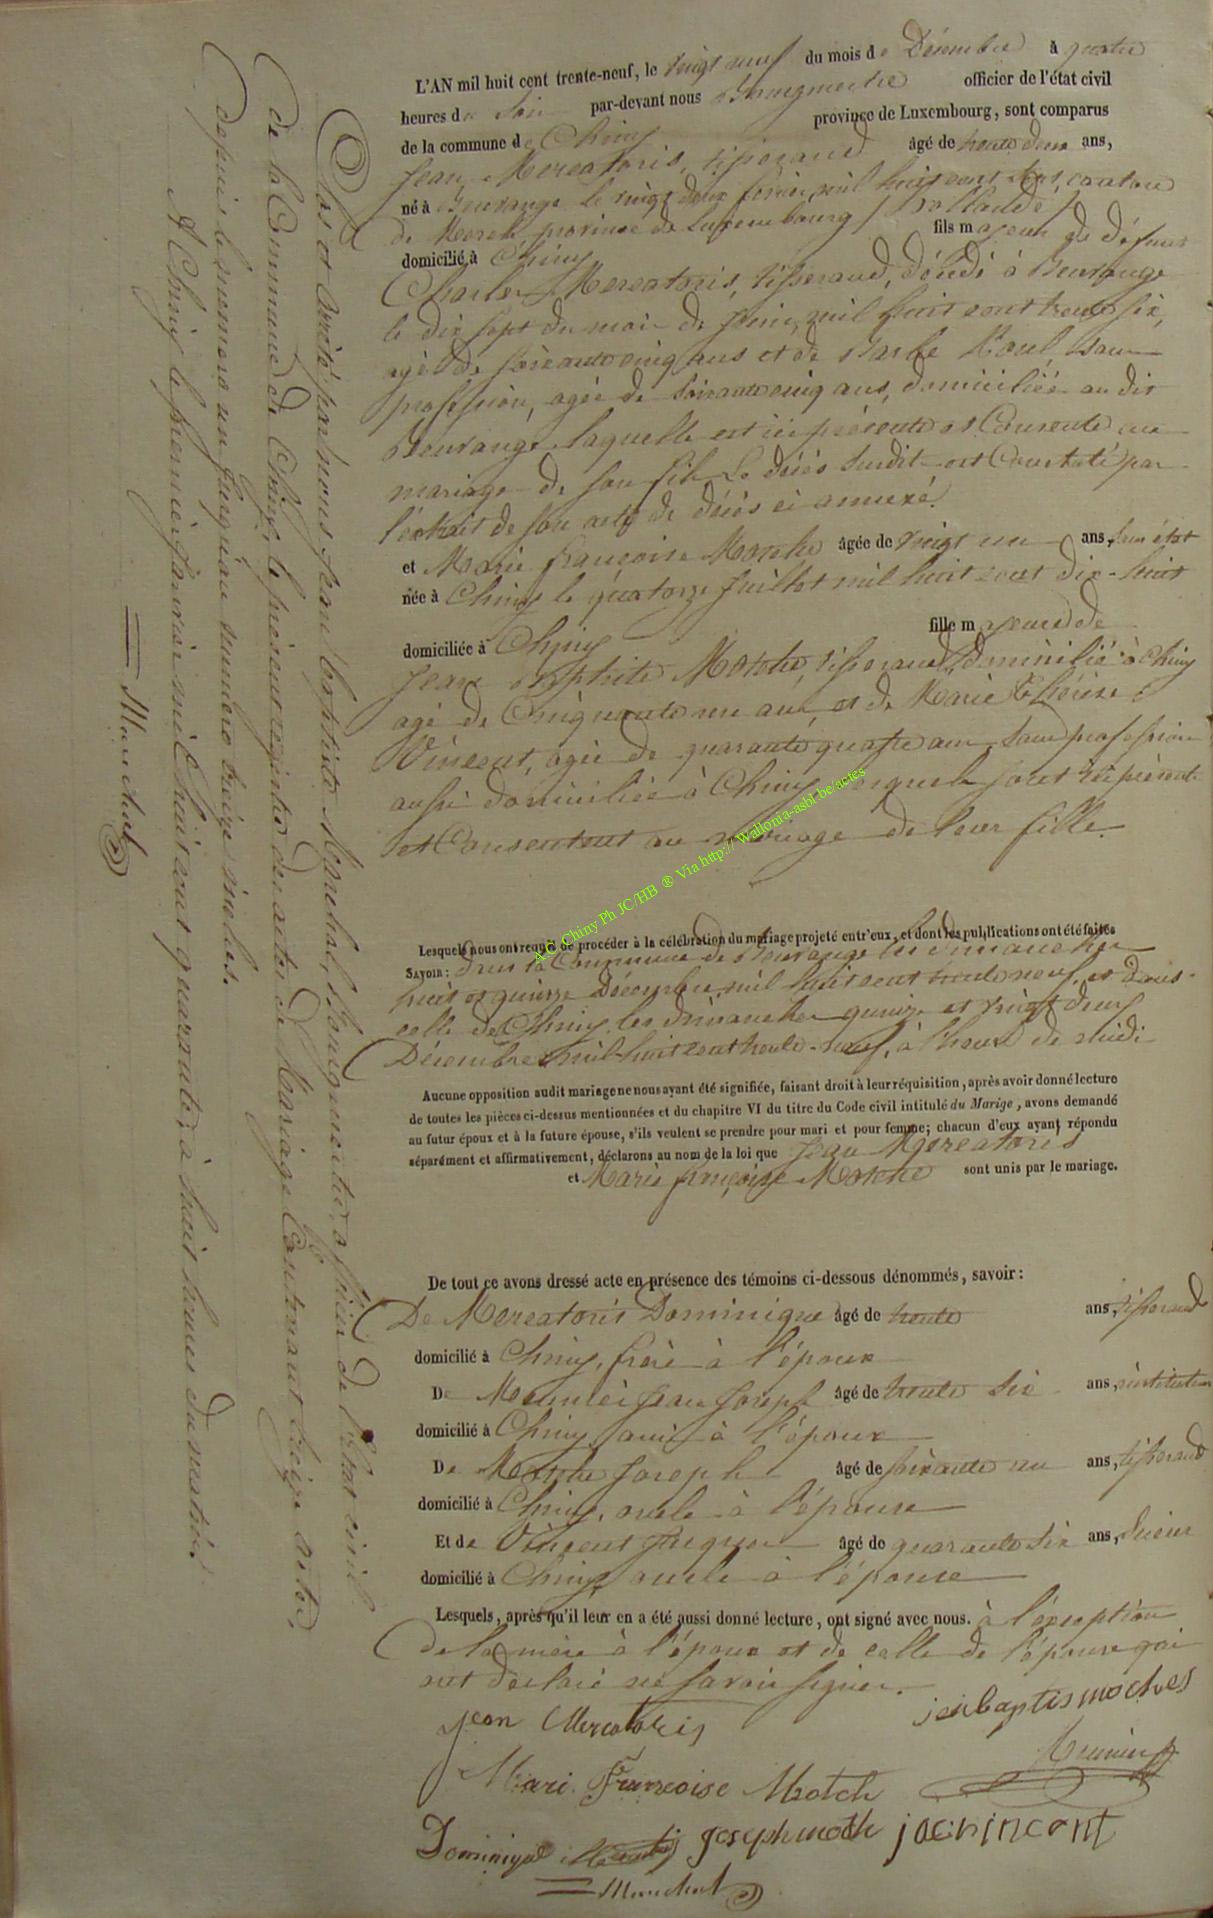 L'AN mil huit cent trente-neuf, le vingt neuf du mois de Décembre à quatre
heures du Soir par-devant nous Bourgmestre officier de l'état civil
de la commune de Chiny province de Luxembourg, sont comparus
Jean Mercatoris, tisserand âgé de trente deux ans,
né à le vingt deux février mil huit cent sept, canton
de province de Luxembourg / hollande /
domicilié à Chiny fils majeur de défunt
Charles Mercatoris, tisserand, décédé à
le dix sept du mois de Juin, mil huit cent trente six,
agé de soixante cinq ans et de Barbe sans
profession, agée de soixante cinq ans, domiciliée au dit
laquelle est ici présente et Consente au
mariage de son fils Le décès susdit est Constaté par
l'extrait de son acte de décès ci annexé.
et Marie françoise Motche âgée de vingt un ans, sans état
née à Chiny le quatorze Juillet mil huit cent dix-huit
domiciliée à Chiny fille majeure de
Jean Baptiste Motche, tisserand, domicilié à Chiny
agé de Cinquante un ans, et de Marie Thérèse
Vincent, agée de quarante quatre ans sans profession
aussi domiciliée à Chiny, lesquels sont ici présents
et Consentent au mariage de leur fille.
A.C. Chiny Ph JC/HB ® Via http://Wallonia-asbl.be/actes
Lesquels nous ont requis de procéder à la célébration du mariage projeté entr'eux, et dont les publications ont été faites
SAVOIR: dans la Commune de les dimanches
huit et quinze Décembre mil huit cent trente neuf, et dans
celle de Chiny les dimanches quinze et vingt deux
Décembre mil-huit cent trente-neuf, à l'heure de midi
Aucune opposition audit mariage ne nous ayant été signifiée, faisant droit à leur réquisition, après avoir donné lecture
de toutes les pièces ci-dessus mentionnées et du chapitre VI du titre du Code civil intitulé du Marige, avons demandé
au futur époux et à la future épouse, s'ils veulent se prendre pour mari et pour femme; chacun d'eux ayant répondu
séparément et affirmativement, déclarons au nom de la loi que Jean Mercatoris
et Marie françoise Motche sont unis par le mariage.
De tout ce avons dressé acte en présence des témoins ci-dessous dénommés, savoir:
De Mercatoris Dominique âgé de trente ans, tisserand
domicilié à Chiny, frère à l'époux
De Meunier Jean Joseph âgé de trente six ans, instituteur
domicilié à Chiny, ami à l'époux
De Motche Joseph âgé de soixante un ans, tisserand
domicilié à Chiny, oncle à l'épouse
Et de Vincent Jacques âgé de quarante six ans, Scieur
domicilié à Chiny, oncle à l'épouse
Lesquels, après qu'il leur en a été aussi donné lecture, ont signé avec nous. à l'exception
de la mère à l'époux et de celle de l'épouse qui
ont déclaré ne savoir signer.
Jean Mercatoris
jeanbaptis moches
Meunier
Mari Françoise Motch
Dominique Mercatoris josephmoth jacvincent
Marchal
Clos et arrêté par nous Jean Baptiste Marchal, Bourgmestre, officier de l'Etat civil
de la Commune de Chiny, le présent registre des actes de Mariage Contenant treize actes,
depuis le numéro un Jusqu'au numéro treize inclus.
A Chiny le premier Janvier mil huit cent quarante, à huit heures du matin.
Marchal